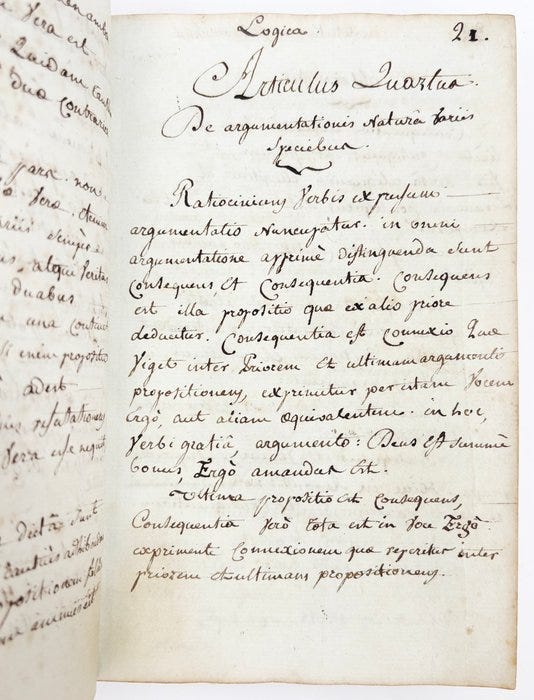 Logica. 21.
Articulus Quartus.
De argumentationis Naturâ variis
Speciebus.
Ratiocinium Verbis expressum
argumentatio Nuncupatur. in omni
argumentatione apprimè distinguenda sunt
Consequens, et Consequentia. Consequens
est illa propositio quæ ex alio priore
deducitur. Consequentia est Connexio Quæ
Viget inter Priorem et ultimam argumenti
propositionem, exprimitur per istam Vocem
Ergò, aut aliam æquivalentem. in hoc,
Verbi gratiâ, argumento: Deus est summè
bonus, Ergò amandus est.
Ultima propositio est Consequens,
Consequentia verò tota est in voce Ergò
exprimente Connexionem quæ reperitur inter
priorem et ultimam propositionem.
Vera est
Quidam
duæ contrariæ
para. non
Vera,
semper
atque
Duabus
una
enim propositio
adest
refutationem
Vera esse nequit
dicta sunt